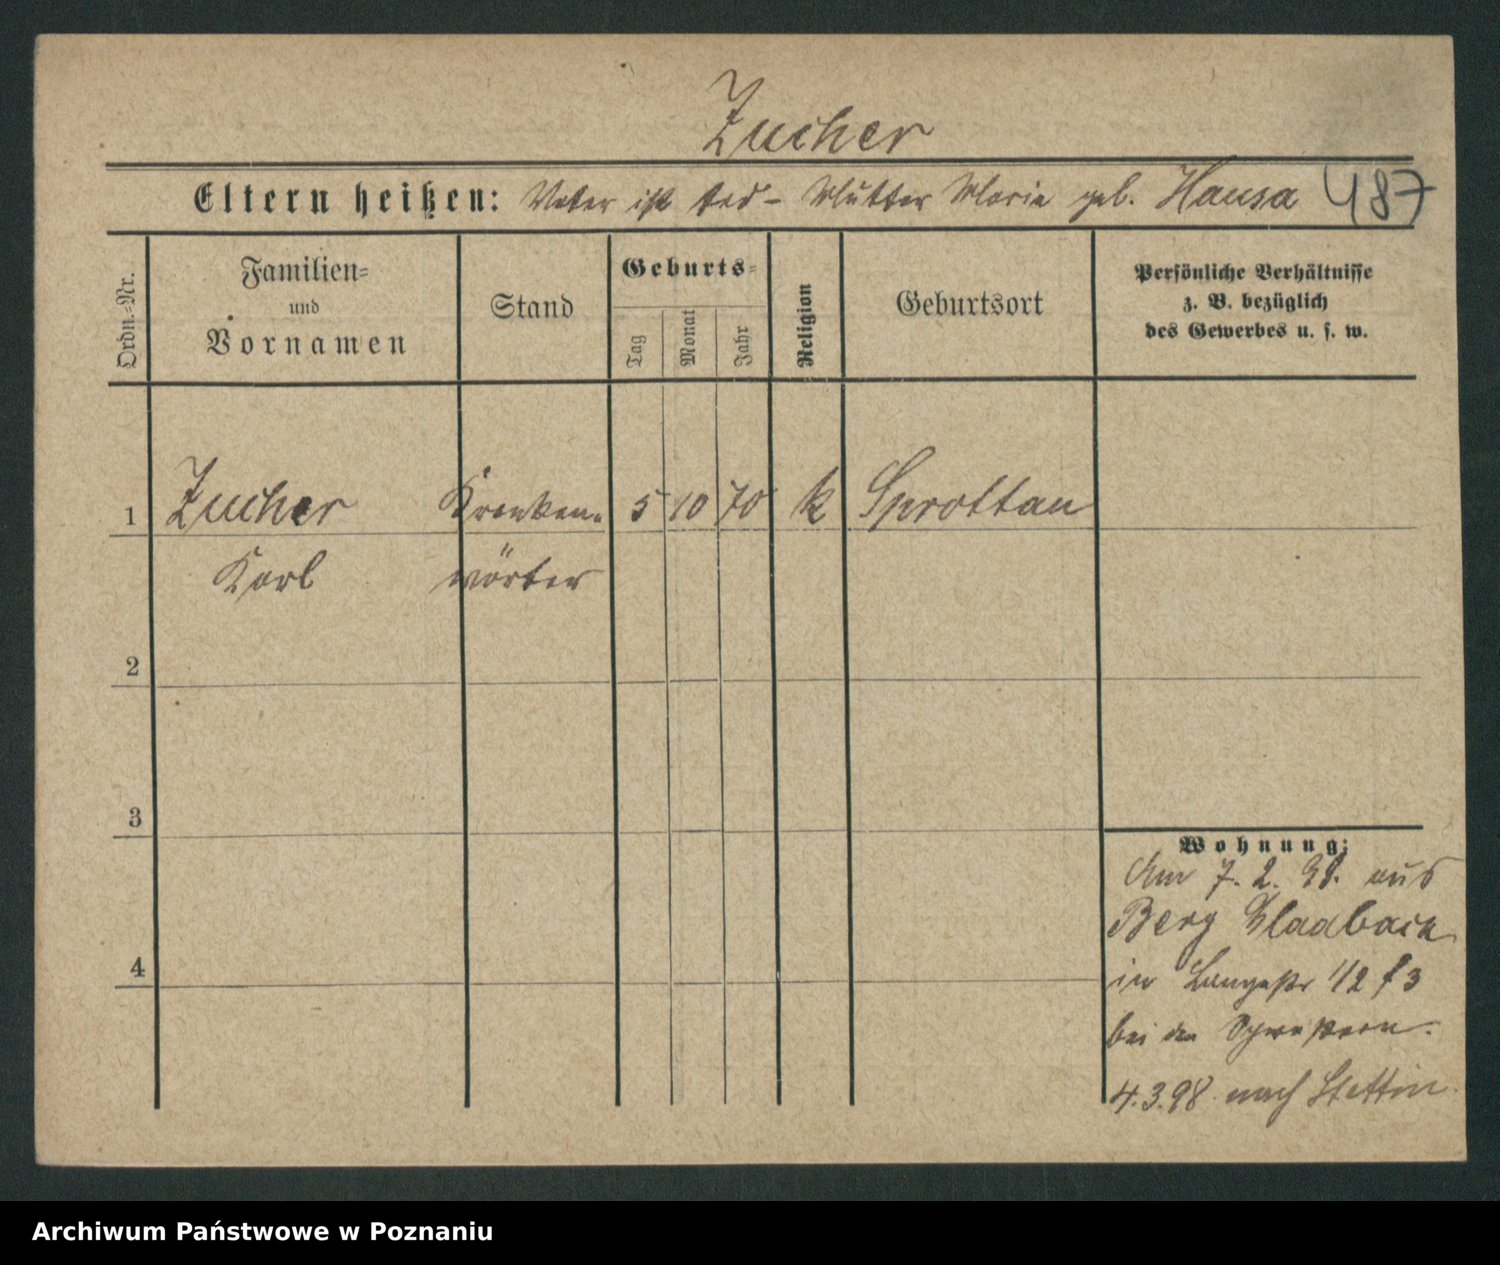 Zucher
Eltern heißen: Vater ist tod - Mutter Maria geb. Hausa 487
Ordn.=Nr.
Familien=
und
Vornamen
Stand
Geburts=
Tag
Monat
Jahr
Religion
Geburtsort
Persönliche Verhältnisse
z. B. bezüglich
des Gewerbes u. s. w.
1 Zucher Kranken= 5 10 70 k Sprottau
Karl wärter
2
3
4
Wohnung:
Am 7. 2. 98. aus
Berg Gladbach
in Langestr 1/2 f 3
bei den Schwestern.
4.3.98 nach Stettin.
Archiwum Państwowe w Poznaniu